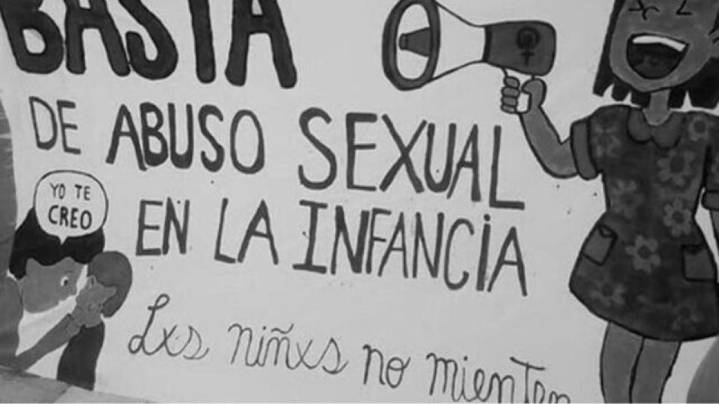 BASTA
DE ABUSO SEXUAL
EN LA INFANCIA
YO TE
CREO
Lxs niñxs no mienten